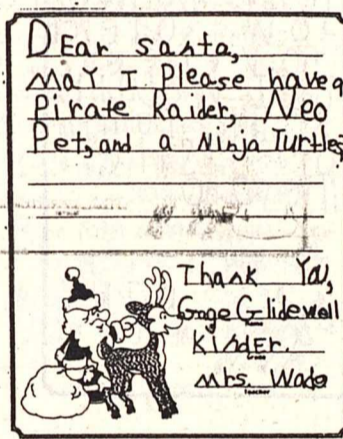 DEar santa,
MaY I Please have a
Pirate Raider, Neo
Pet, and a Ninja Turtles
Thank You,
Gage Glidewell
KindEr.
Grade
Mrs. Wade
Teacher